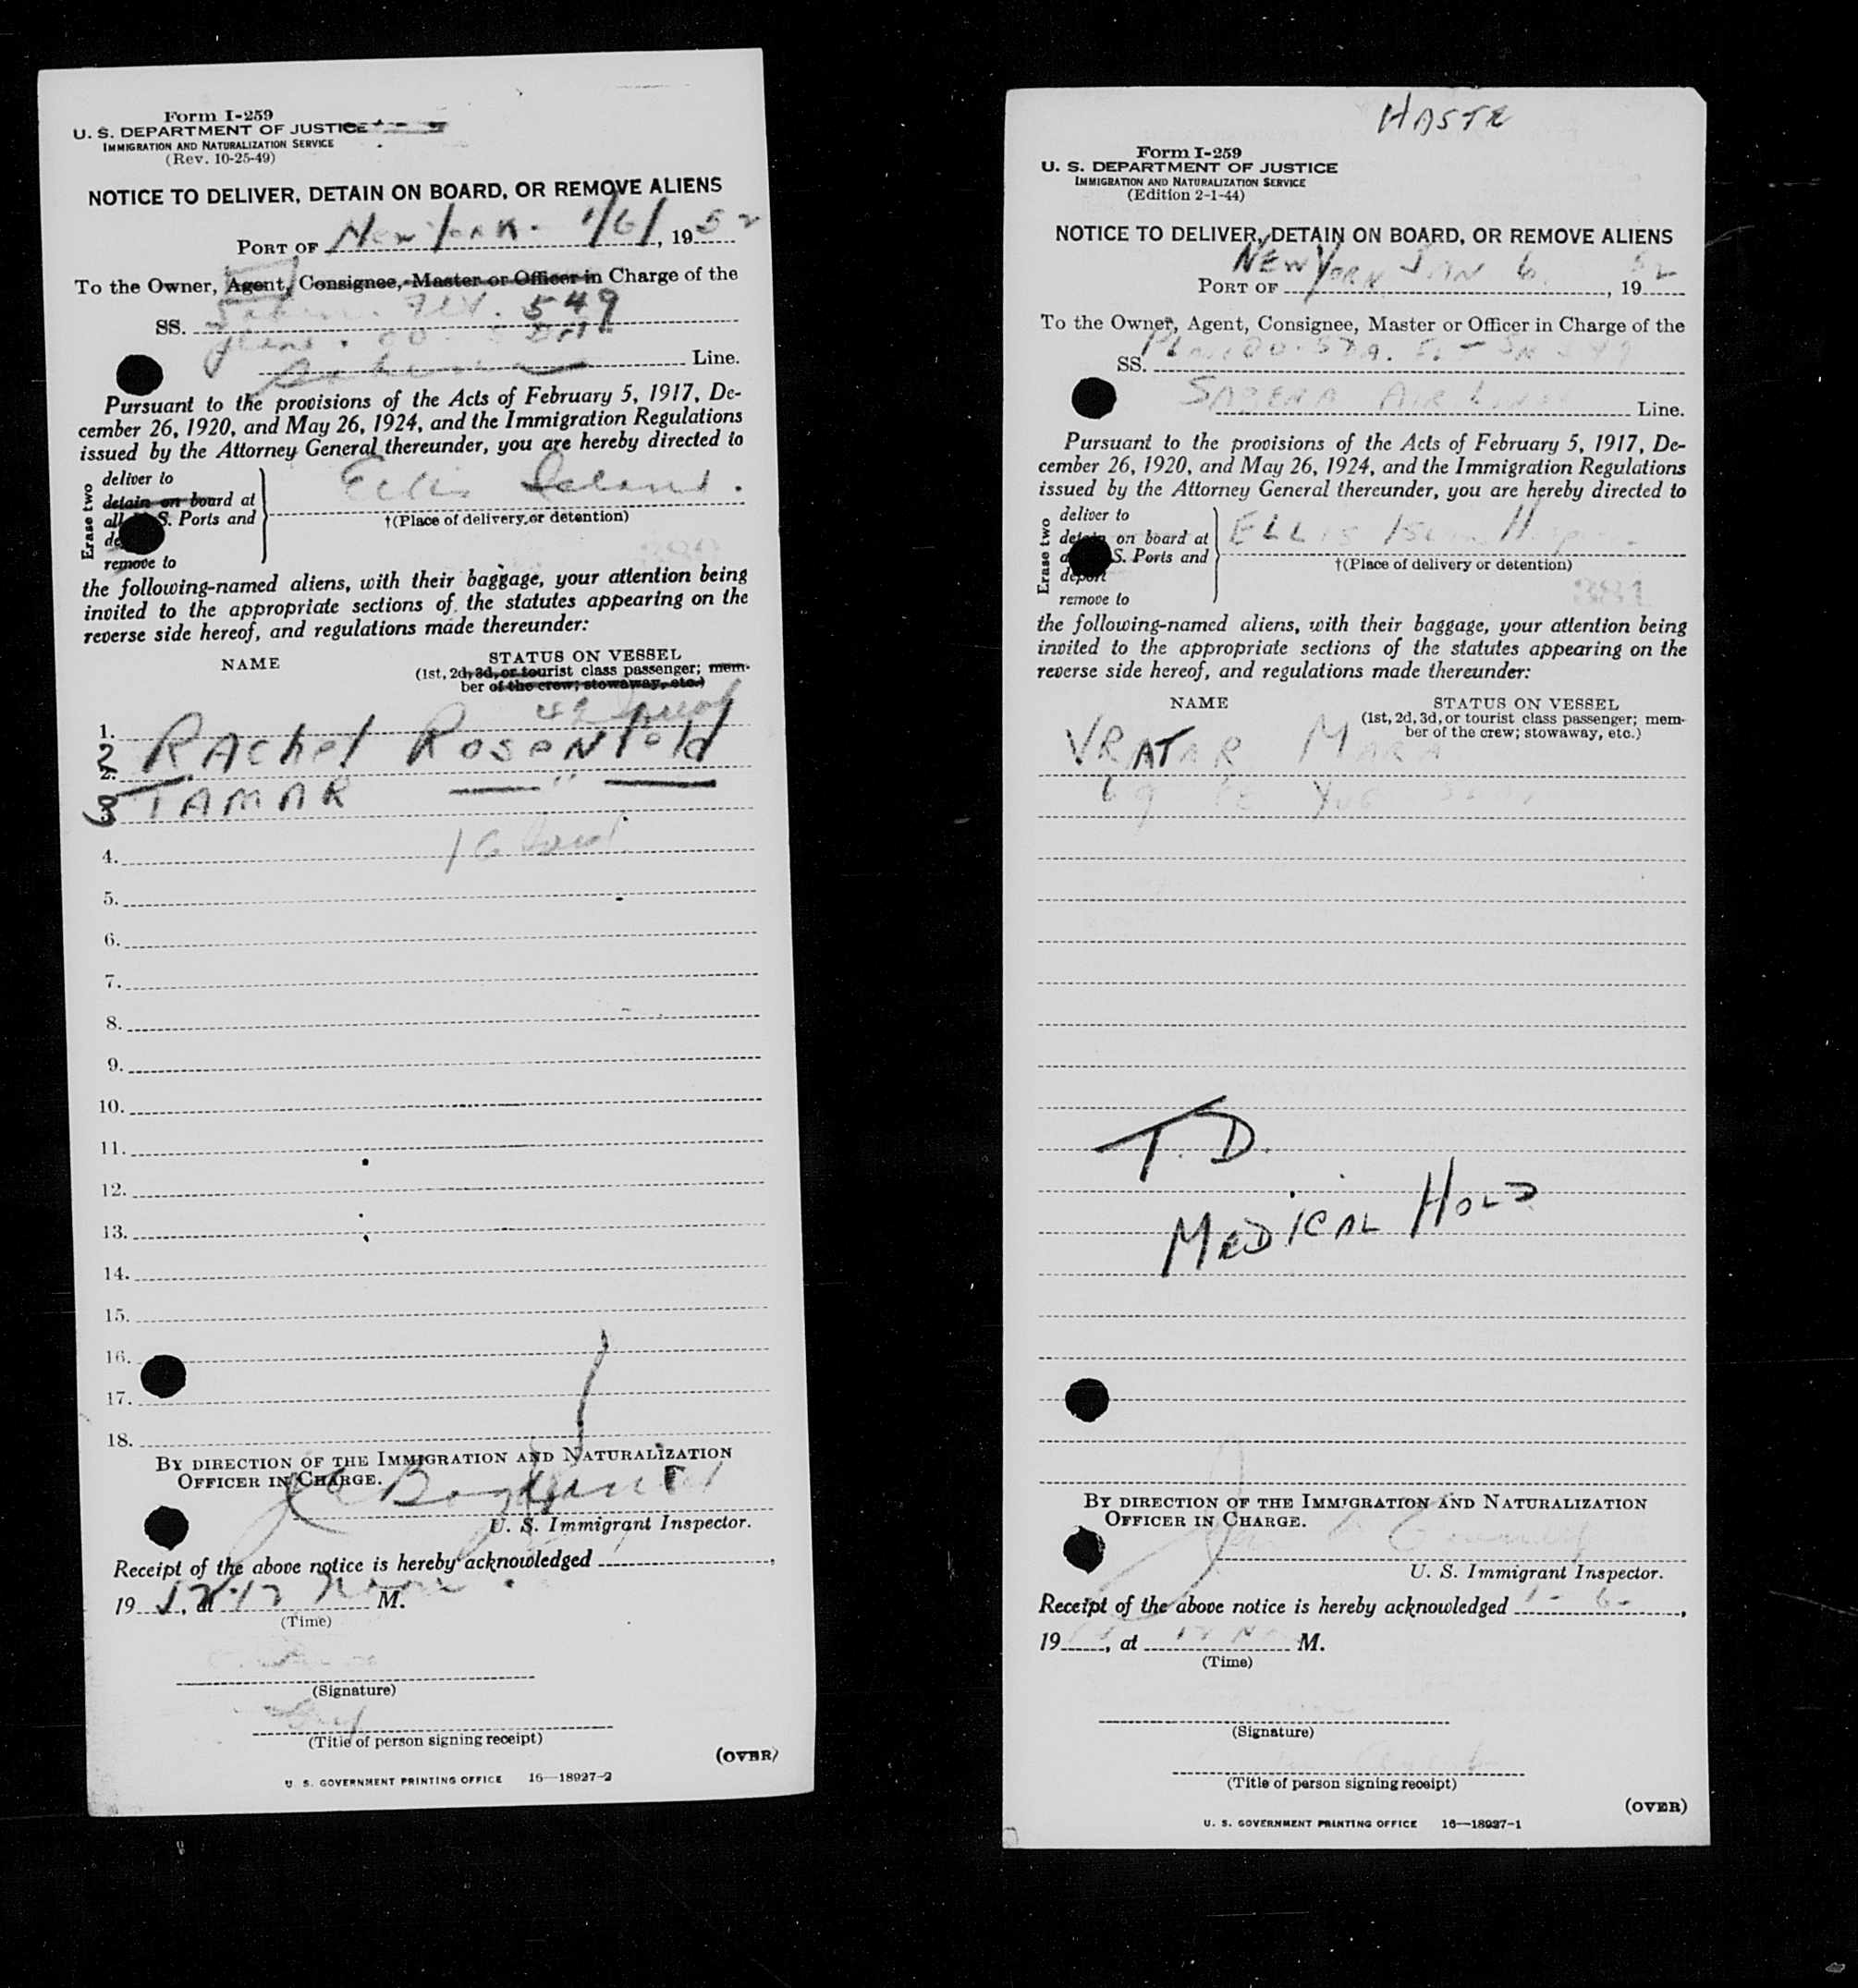 Form I-259
U. S. DEPARTMENT OF JUSTICE
IMMIGRATION AND NATURALIZATION SERVICE
(Rev. 10-25-49)
NOTICE TO DELIVER, DETAIN ON BOARD, OR REMOVE ALIENS
PORT OF New York. 1/6/, 1952
To the Owner, Agent, Consignee, Master or Officer in Charge of the
SS. 549
Line.
Pursuant to the provisions of the Acts of February 5, 1917, De-
cember 26, 1920, and May 26, 1924, and the Immigration Regulations
issued by the Attorney General thereunder, you are hereby directed to
Erase two
deliver to
detain on board at
all S. Ports and
remove to
Ellis Island.
†(Place of delivery or detention)
the following-named aliens, with their baggage, your attention being
invited to the appropriate sections of the statutes appearing on the
reverse side hereof, and regulations made thereunder:
NAME
STATUS ON VESSEL
(1st, 2d, 3d, or tourist class passenger; mem-
ber of the crew; stowaway, etc.)
1.
2 RACHEL ROSENFELD
3 TAMAR "
4. 16
5.
6.
7.
8.
9.
10.
11.
12.
13.
14.
15.
16.
17.
18.
BY DIRECTION OF THE IMMIGRATION AND NATURALIZATION
OFFICER IN CHARGE.
U. S. Immigrant Inspector.
Receipt of the above notice is hereby acknowledged
19, at M.
(Time)
(Signature)
(Title of person signing receipt)
(OVER)
U. S. GOVERNMENT PRINTING OFFICE 16—18927-2
HASTE
Form I-259
U. S. DEPARTMENT OF JUSTICE
IMMIGRATION AND NATURALIZATION SERVICE
(Edition 2-1-44)
NOTICE TO DELIVER, DETAIN ON BOARD, OR REMOVE ALIENS
PORT OF NEW YORK JAN 6, 1952
To the Owner, Agent, Consignee, Master or Officer in Charge of the
SS.
SABENA AIR LINES Line.
Pursuant to the provisions of the Acts of February 5, 1917, De-
cember 26, 1920, and May 26, 1924, and the Immigration Regulations
issued by the Attorney General thereunder, you are hereby directed to
Erase two
deliver to
detain on board at
S. Ports and
deport
remove to
ELLIS ISLAND
†(Place of delivery or detention)
381
the following-named aliens, with their baggage, your attention being
invited to the appropriate sections of the statutes appearing on the
reverse side hereof, and regulations made thereunder:
NAME
STATUS ON VESSEL
(1st, 2d, 3d, or tourist class passenger; mem-
ber of the crew; stowaway, etc.)
VRATAR MARA
69
T.D.
MEDICAL HOLD
BY DIRECTION OF THE IMMIGRATION AND NATURALIZATION
OFFICER IN CHARGE.
U. S. Immigrant Inspector.
Receipt of the above notice is hereby acknowledged 1-6-,
19, at 12 M.
(Time)
(Signature)
(Title of person signing receipt)
(OVER)
U. S. GOVERNMENT PRINTING OFFICE 16—18927-1